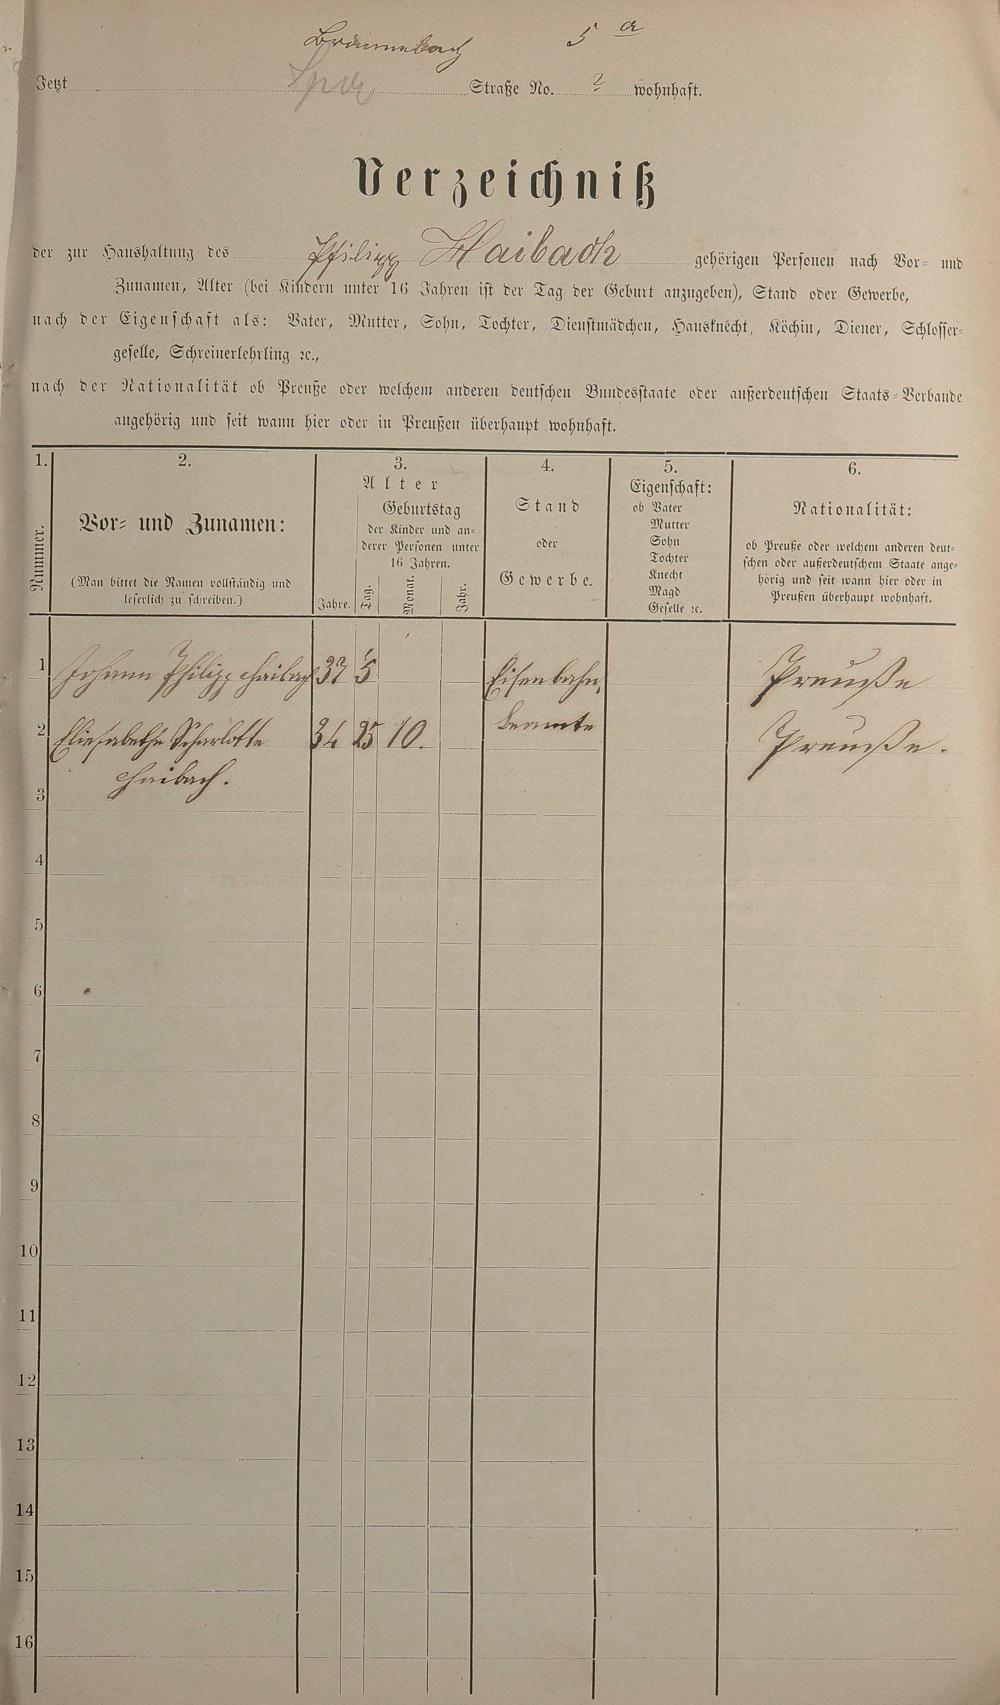 5 a
Jetzt Straße No. wohnhaft.
Verzeichniß
der zur Haushaltung des Philipp Haibach gehörigen Personen nach Vor- und
Zunamen, Alter (bei Kindern unter 16 Jahren ist der Tag der Geburt anzugeben), Stand oder Gewerbe,
nach der Eigenschaft als: Vater, Mutter, Sohn, Tochter, Dienstmädchen, Hausknecht, Köchin, Diener, Schlosser-
geselle, Schreinerlehrling ꝛc.,
nach der Nationalität ob Preuße oder welchem anderen deutschen Bundesstaate oder außerdeutschen Staats-Verbande
angehörig und seit wann hier oder in Preußen überhaupt wohnhaft.
1.
Nummer.
2.
Vor- und Zunamen:
(Man bittet die Namen vollständig und
leserlich zu schreiben.)
3.
Alter
Jahre.
Geburtstag
der Kinder und an-
derer Personen unter
16 Jahren.
Tag. Monat. Jahr.
4.
Stand
oder
Gewerbe.
5.
Eigenschaft:
ob Vater
Mutter
Sohn
Tochter
Knecht
Magd
Geselle ꝛc.
6.
Nationalität:
ob Preuße oder welchem anderen deut-
schen oder außerdeutschem Staate ange-
hörig und seit wann hier oder in
Preußen überhaupt wohnhaft.
1 Johann Philipp Haibach 37 Eisenbahn, Preuße
beamte
2 Eliesabetha Scharlotte 34 25 10. Preuße.
Haibach.
3
4
5
6
7
8
9
10
11
12
13
14
15
16